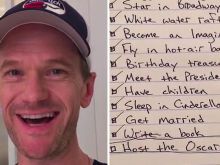 Star in Broadway
White water raft
Become an Imagin
Fly in hot-air bal
Birthday treasu
Meet the Presid
Have children
Sleep in Cinderella
Get married
Write a book
Host the Oscar